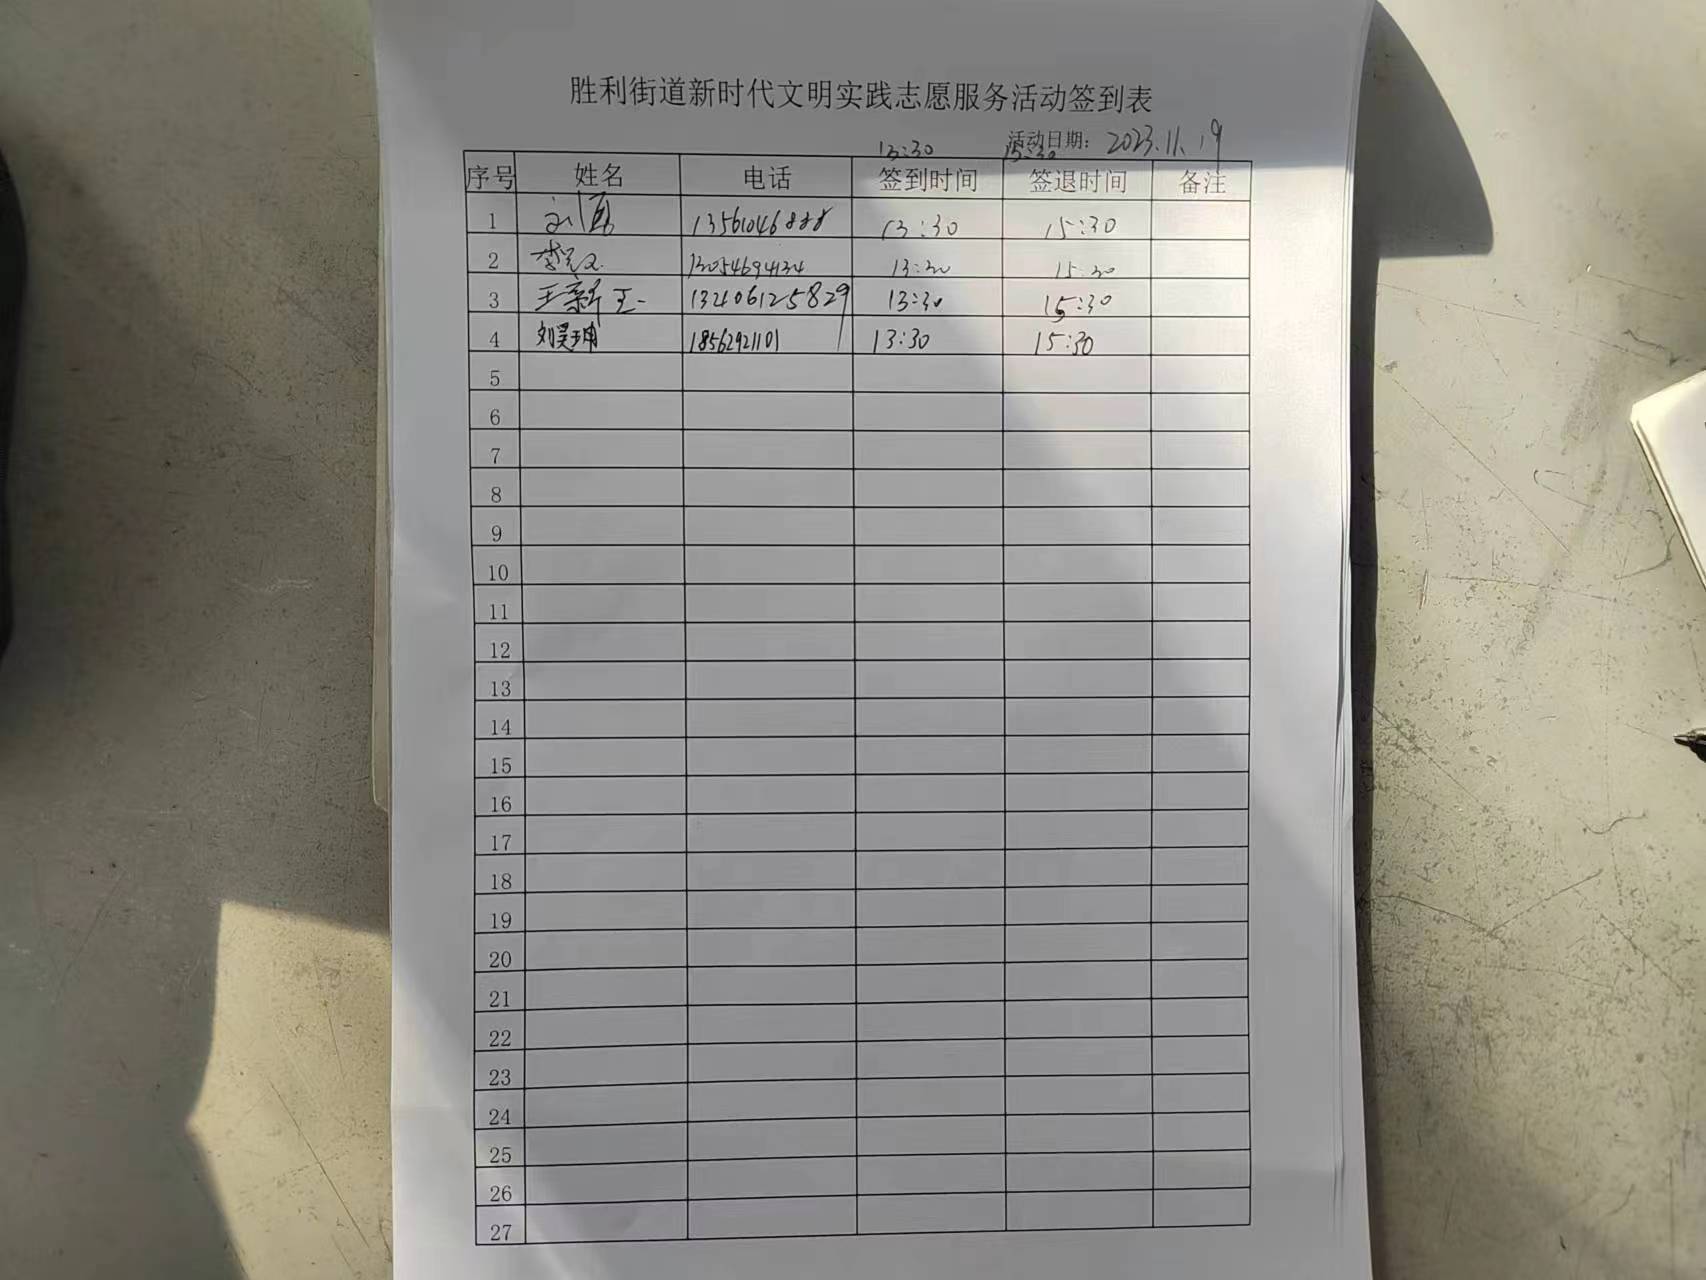 胜利街道新时代文明实践志愿服务活动签到表
活动日期：2023.11.19
13:30 15:30
序号 姓名 电话 签到时间 签退时间 备注
1 13561046888 13:30 15:30
2 13054694134 13:30 15:30
3 王新 13406125829 13:30 15:30
4 刘昊 18562921101 13:30 15:30
5
6
7
8
9
10
11
12
13
14
15
16
17
18
19
20
21
22
23
24
25
26
27